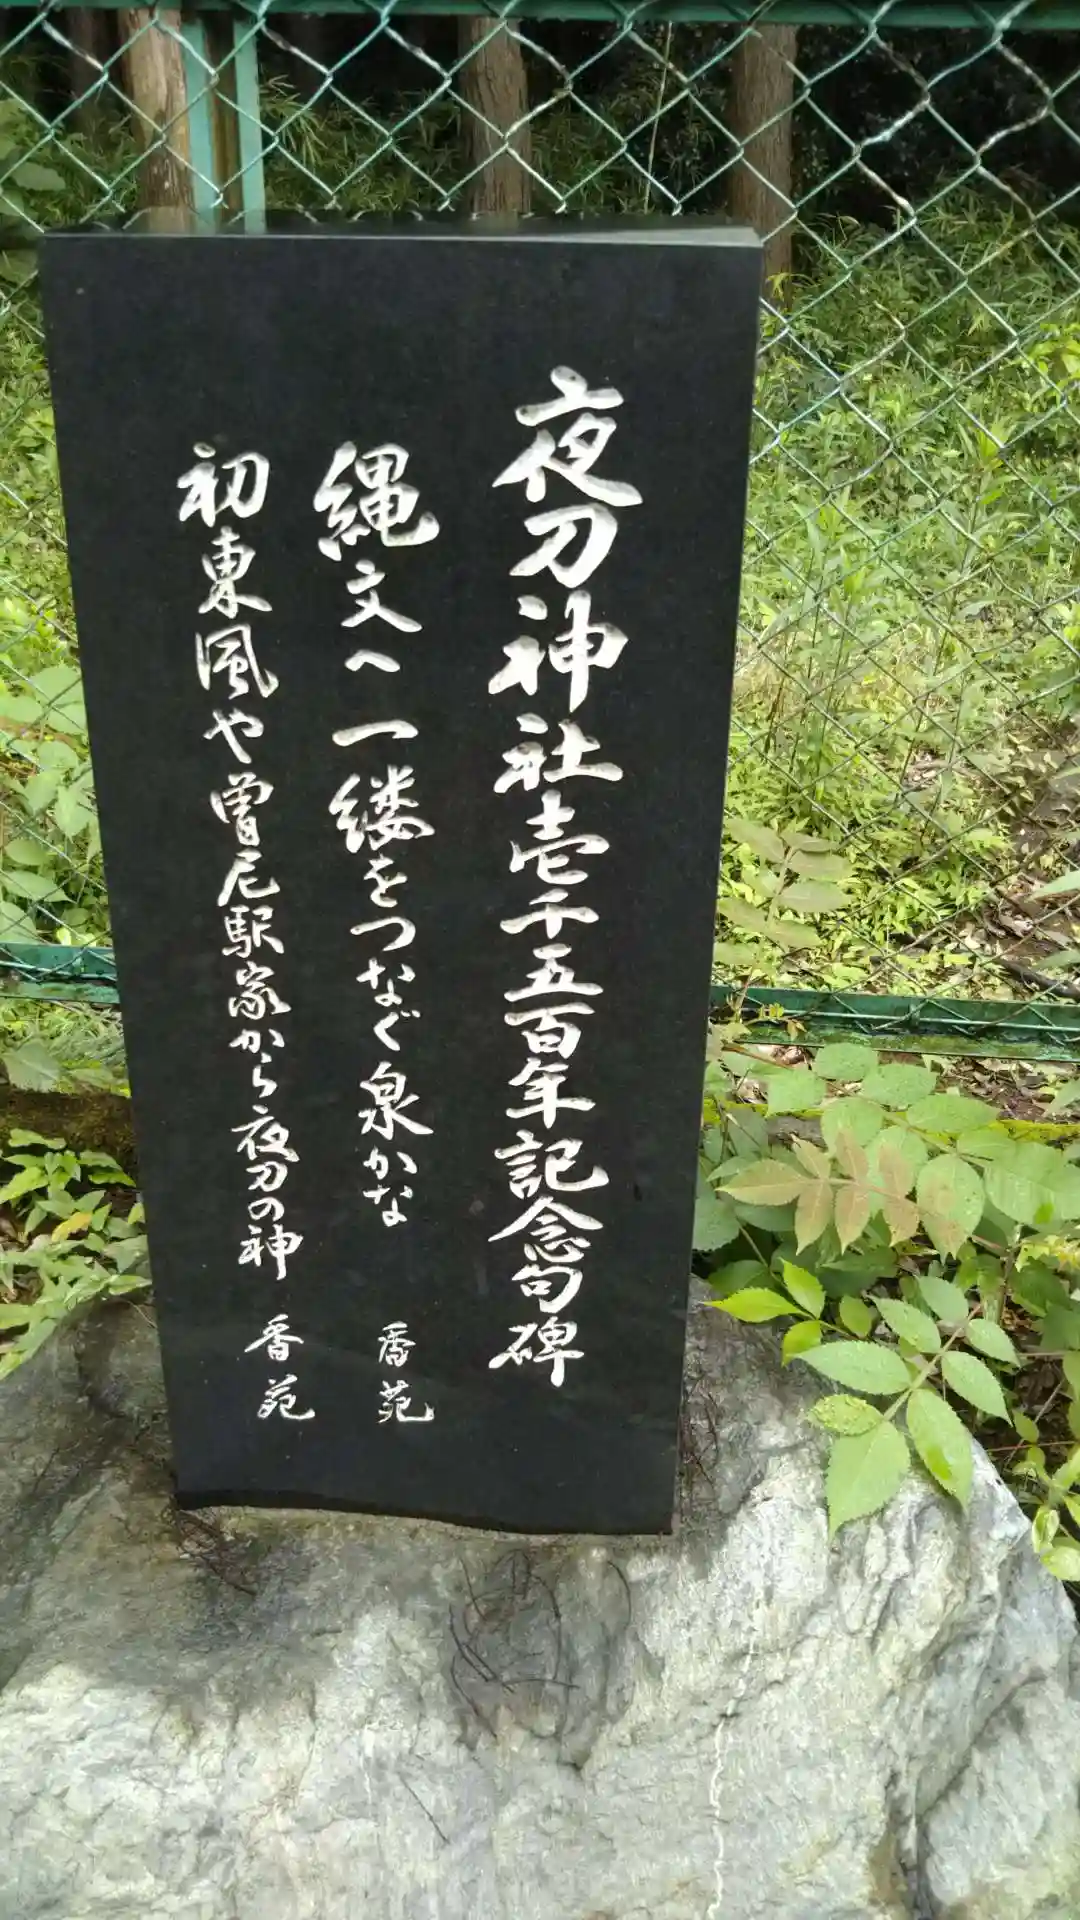 夜刀神社壱千五百年記念句碑
縄文へ一縷をつなぐ泉かな 香苑
初東風や曽尼駅家から夜刀の神 香苑